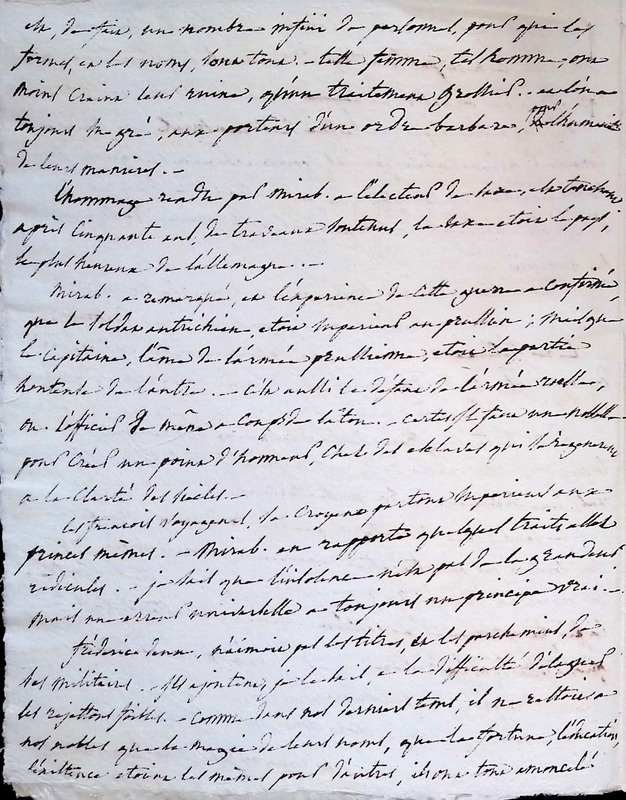 et, de fait, un nombre infini de personnes, pour qui les
formes, et les noms, sont tout. - telle femme, tel homme, ont
moins craint leur ruine, qu'un traitement grossier. - on en a
toujours su gré, aux porteurs d'un ordre barbare, pour l'humanité
de leurs manières. -
l'hommage rendu par Mirab. a l'électeur de Saxe, est touchant
après cinquante ans, de travaux soutenus, la Saxe etoit le pays,
le plus heureux de l'allemagne. . -
Mirab. a remarqué, et l'expérience de cette guerre a confirmé,
que le soldat autrichien, etoit supérieur au prussien ; mais que
le capitaine, l'âme de l'armée prussienne, etoit la partie
honteuse de l'autre. - c'est aussi le défaut de l'armée russe,
ou l'officier se mène a coups de bâton. - certes il faut une noblesse
pour créer un point d'honneur, chez des esclaves qui se régénèrent
a la clarté des siècles. -
les françois voyageurs, se croyent partout supérieurs aux
princes mêmes. - Mirab. en rapporte quelques traits assez
ridicules. - je sais que l'insolence n'est pas de la grandeur
mais une erreur universelle a toujours un principe vrai. -
frédéric deux, n'aimoit pas les titres, et les parchemins, de
ses militaires. - ils ajoutent, je le sais, a la difficulté d'élaguer
les rejettons foibles. - comme dans nos derniers tems, il ne restoit a
nos nobles que la magie de leurs noms, que la fortune, l'éducation,
l'existence etoient les mêmes pour d'autres, ils ont tout amoncelé